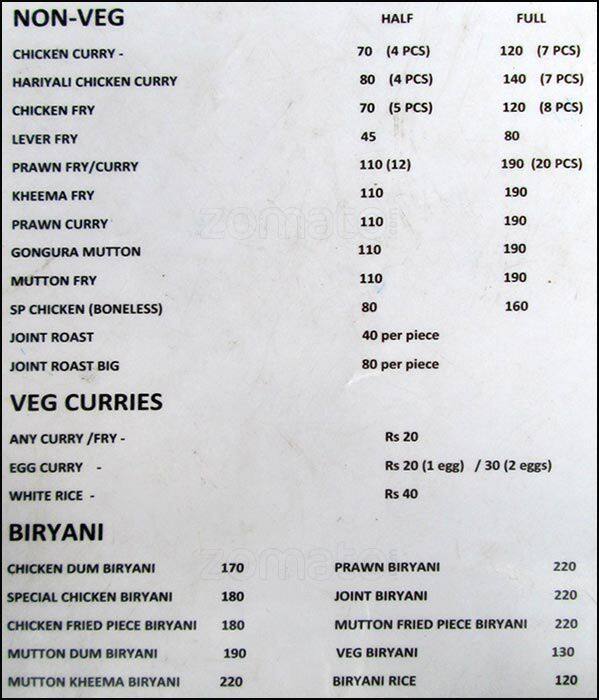 NON-VEG HALF FULL
CHICKEN CURRY - 70 (4 PCS) 120 (7 PCS)
HARIYALI CHICKEN CURRY 80 (4 PCS) 140 (7 PCS)
CHICKEN FRY 70 (5 PCS) 120 (8 PCS)
LEVER FRY 45 80
PRAWN FRY/CURRY 110 (12) 190 (20 PCS)
KHEEMA FRY 110 190
PRAWN CURRY 110 190
zomato
GONGURA MUTTON 110 190
MUTTON FRY 110 190
SP CHICKEN (BONELESS) 80 160
JOINT ROAST 40 per piece
JOINT ROAST BIG 80 per piece
VEG CURRIES
ANY CURRY /FRY - Rs 20
EGG CURRY - Rs 20 (1 egg) / 30 (2 eggs)
WHITE RICE - Rs 40
BIRYANI
CHICKEN DUM BIRYANI 170 PRAWN BIRYANI 220
zomato
SPECIAL CHICKEN BIRYANI 180 JOINT BIRYANI 220
CHICKEN FRIED PIECE BIRYANI 180 MUTTON FRIED PIECE BIRYANI 220
MUTTON DUM BIRYANI 190 VEG BIRYANI 130
MUTTON KHEEMA BIRYANI 220 BIRYANI RICE 120